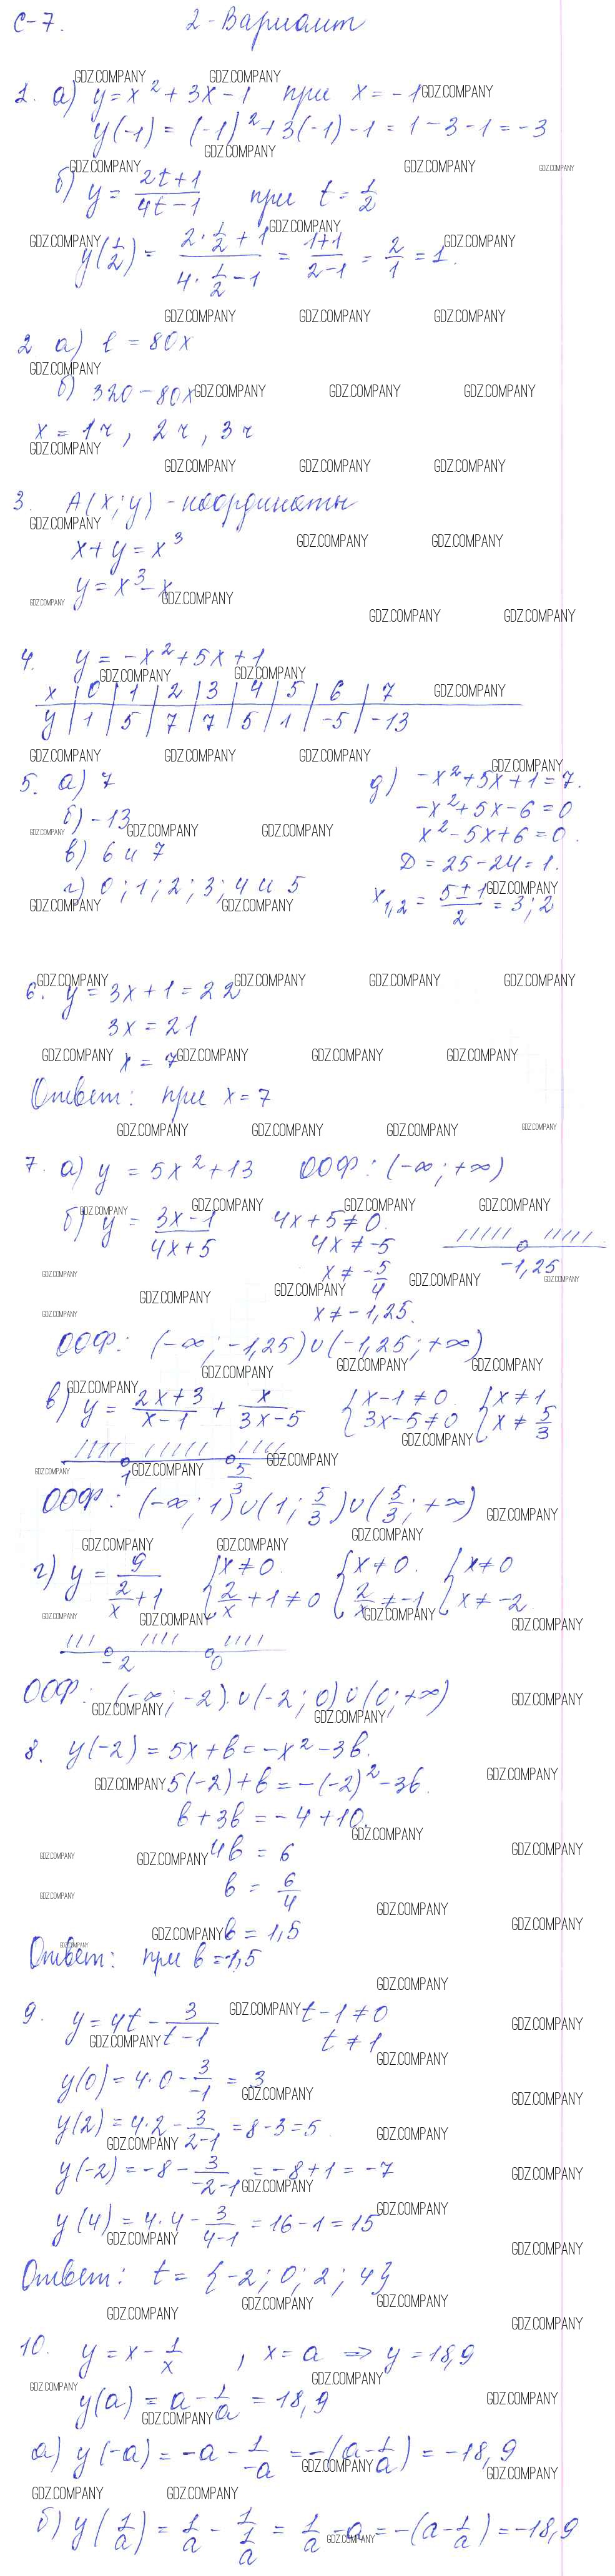 С-7. 2-Вариант
1. а) y = x² + 3x - 1 при x = -1
y(-1) = (-1)² + 3(-1) - 1 = 1 - 3 - 1 = -3
б) y = (2t+1)/(4t-1) при t = 1/2
y(1/2) = (2·1/2+1)/(4·1/2-1) = (1+1)/(2-1) = 2/1 = 1.
2 а) l = 80x
б) 320 - 80x
x = 1ч, 2ч, 3ч
3. A(x; y) - координаты
x + y = x³
y = x³ - x
4. y = -x² + 5x + 1
x | 0 | 1 | 2 | 3 | 4 | 5 | 6 | 7
y | 1 | 5 | 7 | 7 | 5 | 1 | -5 | -13
5. а) 7
б) -13
в) 6 и 7
г) 0; 1; 2; 3; 4 и 5
д) -x² + 5x + 1 = 7.
-x² + 5x - 6 = 0
x² - 5x + 6 = 0.
D = 25 - 24 = 1.
x1,2 = (5±1)/2 = 3; 2
6. y = 3x + 1 = 22
3x = 21
x = 7
Ответ: при x = 7
7. а) y = 5x² + 13 ООФ: (-∞; +∞)
б) y = (3x-1)/(4x+5) 4x + 5 ≠ 0.
4x ≠ -5
x ≠ -5/4
x ≠ -1,25.
-1,25
ООФ: (-∞; -1,25)∪(-1,25; +∞)
в) y = (2x+3)/(x-1) + x/(3x-5) {x-1 ≠ 0. {x ≠ 1
{3x-5 ≠ 0 {x ≠ 5/3
1 5/3
ООФ: (-∞; 1)∪(1; 5/3)∪(5/3; +∞)
г) y = 9/(2/x+1) {x ≠ 0. {x ≠ 0. {x ≠ 0
{2/x + 1 ≠ 0 {2/x ≠ -1 {x ≠ -2.
-2 0
ООФ: (-∞; -2)∪(-2; 0)∪(0; +∞)
8. y(-2) = 5x + b = -x² - 3b.
5(-2) + b = -(-2)² - 3b.
b + 3b = -4 + 10.
4b = 6
b = 6/4
b = 1,5
Ответ: при b = 1,5
9. y = 4t - 3/(t-1) t - 1 ≠ 0
t ≠ 1
y(0) = 4·0 - 3/-1 = 3
y(2) = 4·2 - 3/(2-1) = 8 - 3 = 5.
y(-2) = -8 - 3/(-2-1) = -8 + 1 = -7
y(4) = 4·4 - 3/(4-1) = 16 - 1 = 15
Ответ: t = {-2; 0; 2; 4}
10. y = x - 1/x, x = a ⇒ y = 18,9
y(a) = a - 1/a = 18,9
а) y(-a) = -a - 1/-a = -(a - 1/a) = -18,9
б) y(1/a) = 1/a - 1/(1/a) = 1/a - a = -(a - 1/a) = -18,9
GDZ.COMPANY